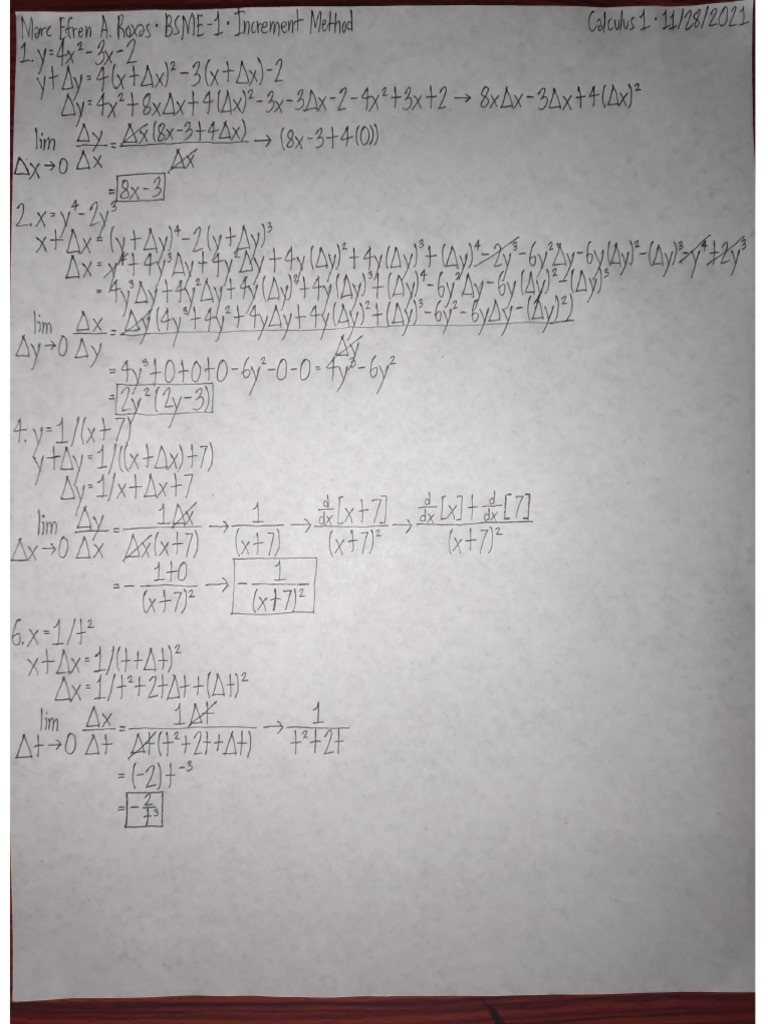 Marc Efren A. Roxas · BSME-1 · Increment Method Calculus 1 · 11/28/2021
1. y=4x²-3x-2
y+Δy=4(x+Δx)²-3(x+Δx)-2
Δy=4x²+8xΔx+4(Δx)²-3x-3Δx-2-4x²+3x+2 → 8xΔx-3Δx+4(Δx)²
lim Δx→0 Δy/Δx = Δx(8x-3+4Δx)/Δx → (8x-3+4(0))
= 8x-3
2. x=y⁴-2y³
x+Δx=(y+Δy)⁴-2(y+Δy)³
Δx=y⁴+4y³Δy+4y²Δy+4y(Δy)²+4y(Δy)³+(Δy)⁴-2y³-6y²Δy-6y(Δy)²-(Δy)³-y⁴+2y³
=4y³Δy+4y²Δy+4y(Δy)²+4y(Δy)³+(Δy)⁴-6y²Δy-6y(Δy)²-(Δy)³
lim Δy→0 Δx/Δy = Δy(4y³+4y²+4yΔy+4y(Δy)²+(Δy)³-6y²-6yΔy-(Δy)²)/Δy
=4y³+0+0+0-6y²-0-0=4y³-6y²
=2y²(2y-3)
4. y=1/(x+7)
y+Δy=1/((x+Δx)+7)
Δy=1/x+Δx+7
lim Δx→0 Δy/Δx = 1Δx/Δx(x+7) → 1/(x+7) → d/dx[x+7]/(x+7)² → d/dx[x]+d/dx[7]/(x+7)²
=-1+0/(x+7)² → -1/(x+7)²
6. x=1/t²
x+Δx=1/(t+Δt)²
Δx=1/t²+2tΔt+(Δt)²
lim Δt→0 Δx/Δt = 1Δt/Δt(t²+2t+Δt) → 1/t²+2t
=(-2)t⁻³
=-2/t³